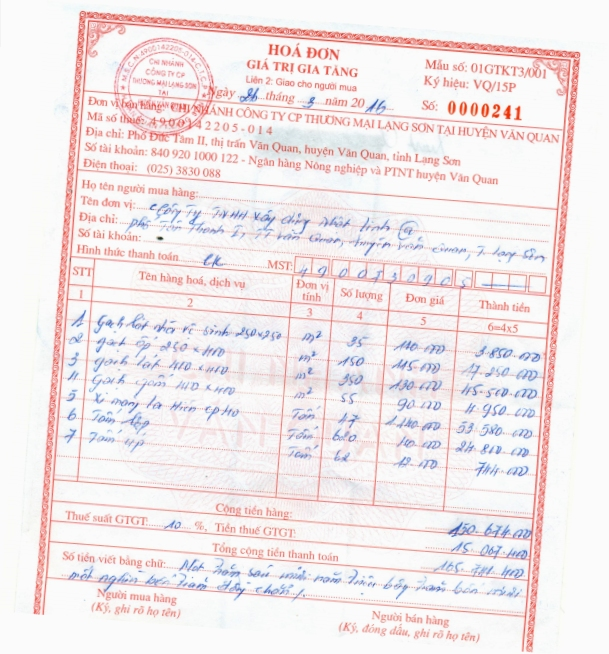 HOÁ ĐƠN
GIÁ TRỊ GIA TĂNG
Liên 2: Giao cho người mua
Mẫu số: 01GTKT3/001
Ký hiệu: VQ/15P
Số: 0000241
M.S.C.N:4900142205-014.C.T.C.P
CHI NHÁNH
CÔNG TY CP
THƯƠNG MẠI LẠNG SƠN
TẠI
Ngày 26 tháng 3 năm 2016
Đơn vị bán hàng: CHI NHÁNH CÔNG TY CP THƯƠNG MẠI LẠNG SƠN TẠI HUYỆN VĂN QUAN
Mã số thuế: 4900142205-014
Địa chỉ: Phố Đức Tâm II, thị trấn Văn Quan, huyện Văn Quan, tỉnh Lạng Sơn
Số tài khoản: 840 920 1000 122 - Ngân hàng Nông nghiệp và PTNT huyện Văn Quan
Điện thoại: (025) 3830 088
Họ tên người mua hàng:
Tên đơn vị: Công ty TNHH xây dựng
Địa chỉ: phố Tân Thanh I, TT Văn Quan, huyện Văn Quan, T. Lạng Sơn
Số tài khoản:
Hình thức thanh toán CK MST: 4900530905
STT Tên hàng hoá, dịch vụ Đơn vị tính Số lượng Đơn giá Thành tiền
1 2 3 4 5 6=4x5
1 gạch lát vệ sinh 250x250 m² 35 110.000 3.850.000
2 gạch ốp 250x400 m² 150 115.000 17.250.000
3 gạch lát 400x400 m² 350 130.000 45.500.000
4 Gạch gốm 400x400 m² 55 90.000 4.950.000
5 Xi măng La Hiên 47 1.140.000 53.580.000
6 Tấm lợp Tấm 620 40.000 24.800.000
7 Tấm úp Tấm 62 12.000 744.000
Cộng tiền hàng: 150.674.000
Thuế suất GTGT: 10 %, Tiền thuế GTGT: 15.067.400
Tổng cộng tiền thanh toán 165.741.400
Số tiền viết bằng chữ: Một trăm sáu mươi năm triệu bảy trăm bốn mươi
mốt nghìn bốn trăm đồng chẵn
Người mua hàng Người bán hàng
(Ký, ghi rõ họ tên) (Ký, đóng dấu, ghi rõ họ tên)